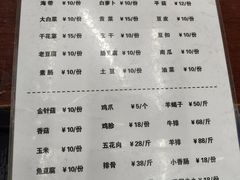 海带 ¥10/份 白萝卜 ¥10/份 平菇 ¥12/份
大白菜 ¥10/份 青菜 ¥10/份 豆皮 ¥10/份
千花菜 ¥10/份 ¥10/份 豆包 ¥10/份
老豆腐 ¥10/份 脆豆腐 ¥10/份 南瓜 ¥10/份
素肠 ¥10/份 土豆 ¥10/份 油菜 ¥10/份
金针菇 ¥10/份 鸡爪 ¥5/个 羊蝎子 ¥50/斤
香菇 ¥10/份 鸡胗 ¥18/份 牛排 ¥68/斤
玉米 ¥10/份 五花肉 ¥28/斤 羊排 ¥88/斤
鱼豆腐 ¥10/份 排骨 ¥38/斤 小香肠 ¥18/份